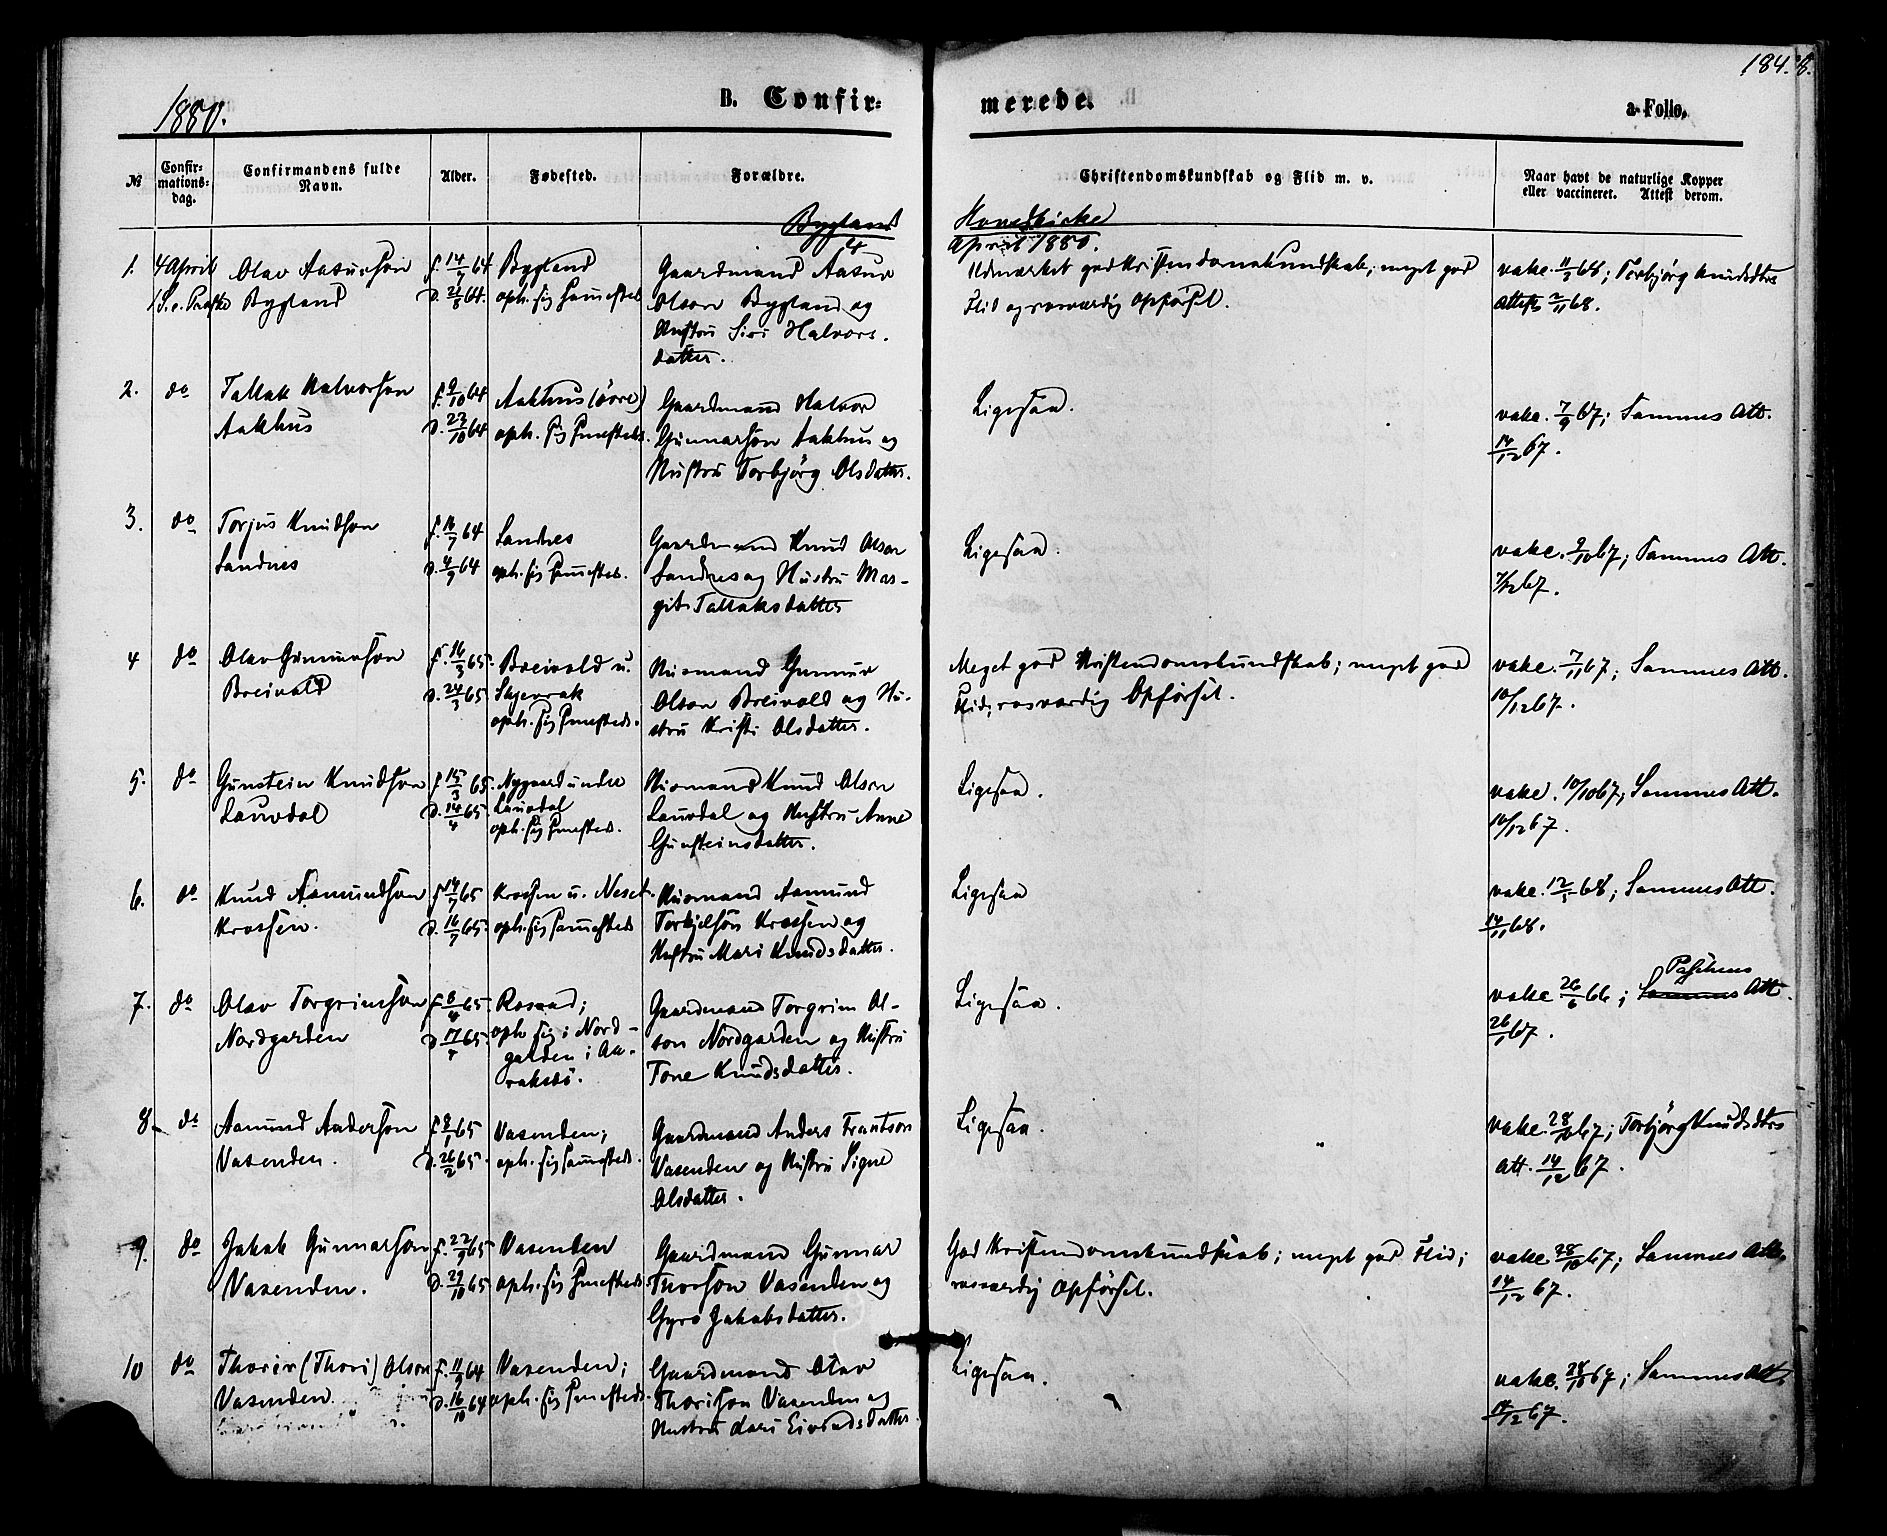 184.8.
1880.
B. Confir-
merede.
a Folio.
№
Confir-
mations-
dag.
Confirmandens fulde
Navn.
Alder.
Fødested.
Forældre.
Christendomskundskab og Flid m. v.
Naar havt de naturlige Kopper
eller vaccineret. Attest derom.
Bygland
Hovedkirke
4
April 1880.
1.
4 April
1 S. e. Paaske
Olav Aasurson
Bygland
f. 14/7 64
d. 21/8 64.
Bygland
oph. sig sammesteds
Gaardmand Aasur
Olson Bygland og
Hustru Siri Halvors-
datter.
Udmærket god Kristendomskundskab; meget god
Flid og rosværdig Opførsel.
vakc. 11/9 68; Torbjørg Knudsdtrs
Attest 2/11 68.
2.
do
Tallak Halvorson
Aakhus
f. 9/10 64
d. 23/10 64
Aakhus (øvre)
oph. sig sammesteds.
Gaardmand Halvor
Gunnarson Aakhus og
Hustru Torbjörg Olsdatter.
Ligesaa.
vakc. 7/9 67; Sammes Att.
14/12 67.
3.
do
Torjus Knudson
Sandnes
f. 16/7 64
d. 4/9 64
Sandnes
oph. sig sammesteds.
Gaardmand Knud Olson
Sandnes og Hustru Mar-
git Tallaksdatter
Ligesaa.
vakc. 9/10 67; Sammes Att.
7/12 67.
4
do
Olav Gunnarson
Breivold
f. 16/3 65.
d. 24/3 65
Breivold u.
Skjevrak
oph. sig sammesteds.
Husmand Gunnar
Olson Breivold og Hu-
stru Kristi Olsdatter.
Meget god Kristendomskundskab; meget god
Flid; rosværdig Opførsel.
vakc. 7/11 67; Sammes Att.
10/12 67.
5.
do
Gunstein Knudson
Lauvdal
f. 15/3 65
d. 14/4 65.
Nygaard under
Lauvdal
oph. sig sammesteds.
Husmand Knud Olson
Lauvdal og Hustru Anne
Gunsteinsdatter.
Ligesaa.
vakc. 10/10 67; Sammes Att.
10/12 67.
6.
do
Knud Aamundson
Krossen.
f. 14/7 65
d. 16/7 65.
Krossen u. Neset.
oph. sig sammesteds
Husmand Aamund
Torkjelson Krossen og
Hustru Mari Knudsdatter.
Ligesaa
vakc. 12/5 68; Sammes Att.
14/11 68.
7.
do
Olav Torgrimson
Nordgarden
f. 8/4 65.
d. 17/4 65.
oph. sig i Nord-
garden i Aa-
raksbø.
Gaardmand Torgrim Ol-
son Nordgarden og Hustru
Tone Knudsdatter.
Ligesaa.
vakc 26/6 66; Sammes Att.
26/1 67.
8
do
Aamund Anderson
Vasenden.
f. 8/1 65
d. 26/2 65.
Vasenden;
oph. sig sammesteds.
Gaardmand Anders Frantson
Vasenden og Hustru Signe
Olsdatter.
Ligesaa.
vakc. 28/10 67; Torbjørg Knudsdtrs
Att. 14/12 67.
9.
do
Jakob Gunnarson
Vasenden.
f. 22/9 65
d. 29/10 65
Vasenden
oph. sig sammesteds
Gaardmand Gunnar
Thorson Vasenden og
Gyro Jakobsdatter.
God Kristendomskundskab; meget god Flid;
rosværdig Opførsel.
vakc 28/10 67; Sammes Att.
14/12 67.
10
do
Thorer (Thori) Olson
Vasenden.
f. 11/9 64
d. 16/10 64
Vasenden;
oph. sig sammesteds.
Gaardmand Olav
Thorison Vasenden og
Hustru Kari Eivindsdatter.
Ligesaa.
vakc. 28/10 67; Sammes Att.
14/12 67.